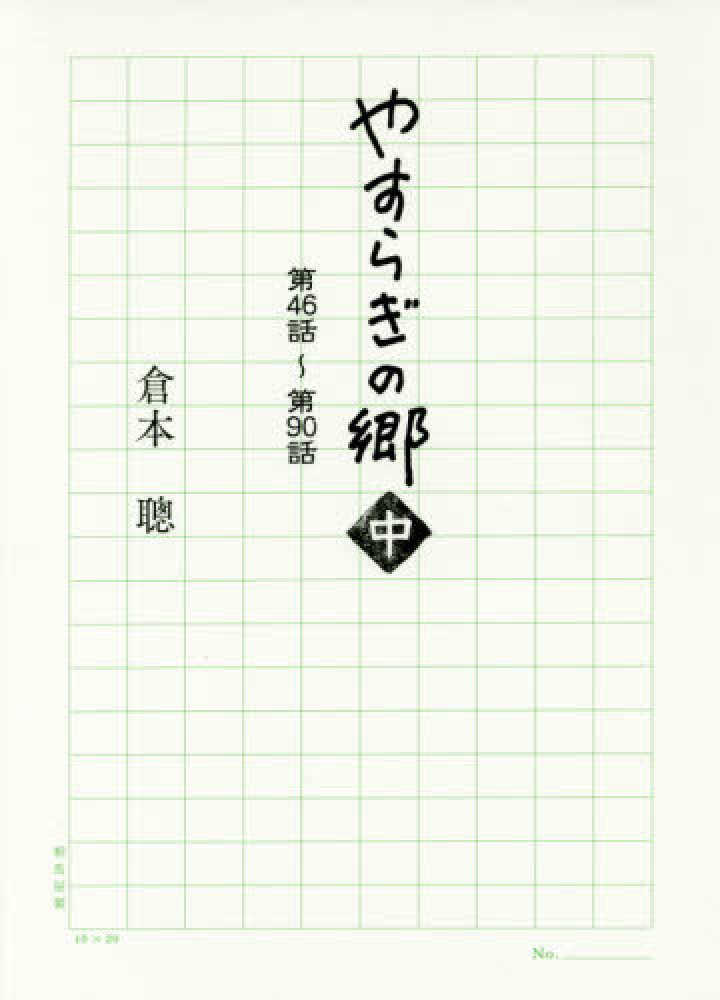 やすらぎの郷
中
第46話～第90話
倉本 聰
10×20
No.